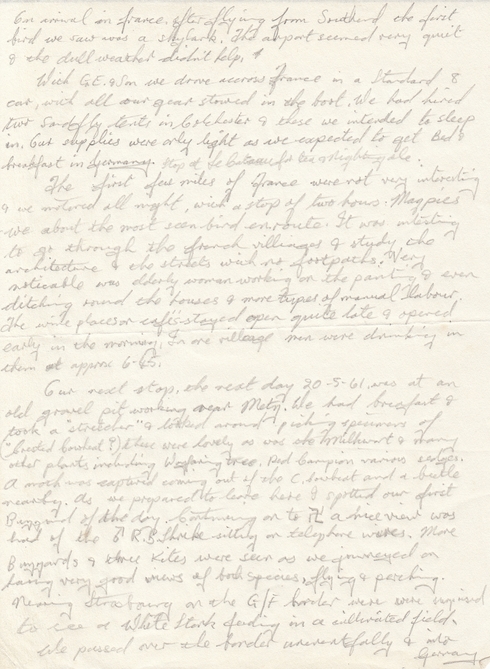 On arrival in france. After flying from Southend the first
bird we saw was a skylark. The airport seemed very quiet
& the dull weather didn't help,
With G.E. & Son we drove accross France in a Standard 8
car, with all our gear stowed in the boot. We had hired
two Sandfly tents in Colchester & these we intended to sleep
in. Our supplies were only light as we expected to get Bed &
breakfast in Germany. Stop at
The first few miles of France were not very interesting
& we motored all night, with a stop of two hours. Magpies
we about the most seen bird enroute. It was interesting
to go through the french villiages & study the
architecture & the streets with no footpaths. Very
noticable was elderly woman working on the painting & even
ditching round the houses & more types of manual labour.
The wine places or cafe's stayed open quite late & opened
early in the morning, in one village men were drinking in
them at approx 6-15.
Our next stop, the next day 20-5-61 was at an
old gravel pit working near Metz. We had breakfast &
took a "stretcher" & looked around picking specimens of
(Crested Cowheat?) these were lovely as was the Milkwort & many
other plants including Wayfaring tree, Red Campion various sedges.
A moth was captured coming out of the C. Cowheat and a beetle
nearby. As we prepared to leave here I spotted our first
Buzzard of the day. Continuing on to a nice view was
had of the R.B. Shrike sitting on telephone wires. More
Buzzards & three Kites were seen as we journeyed on
having very good views of both species, flying & perching.
Nearing Strasbourg on the G/F border were were
to see a White Stork feeding in a cultivated field.
We passed over the border uneventfully & into
Germany.